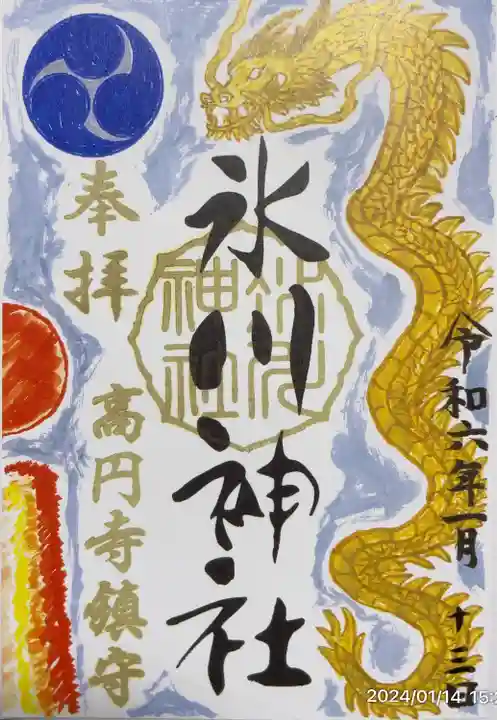 令和六年一月十三日
氷川神社
氷川神社
奉拝
高円寺鎮守
2024/01/14 15: